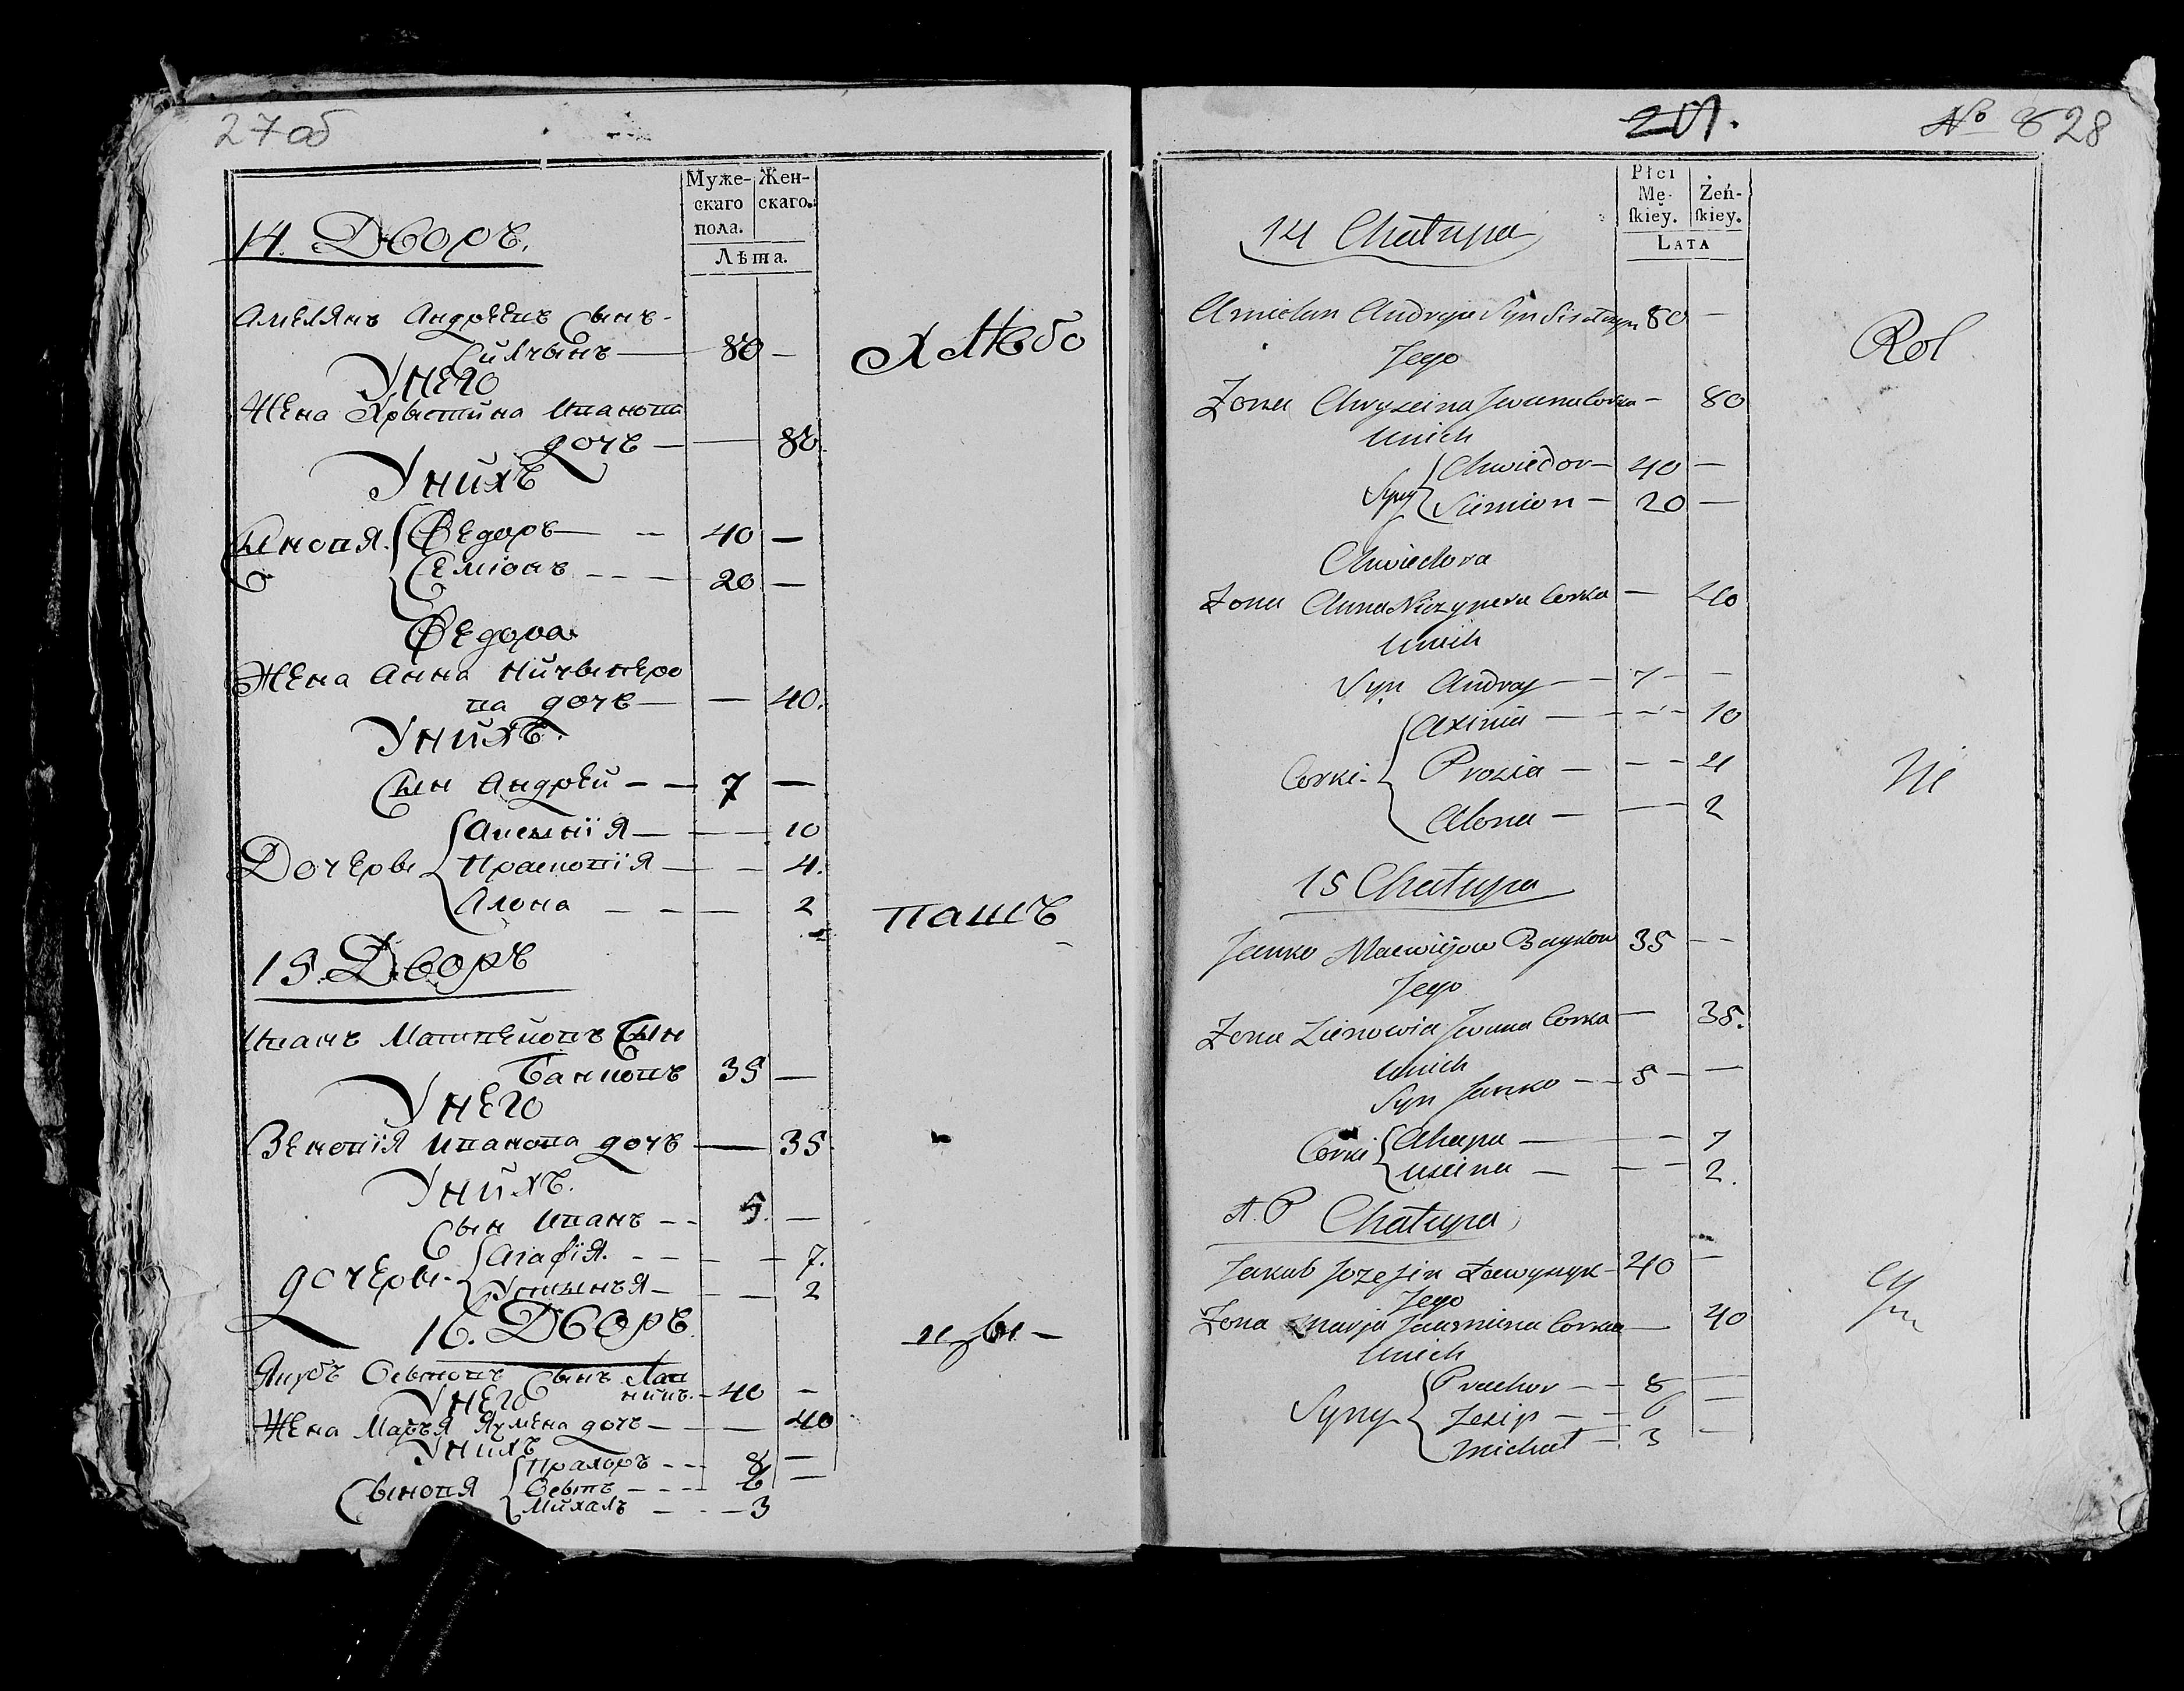 27 об
Муже-
скаго
пола.
Жен-
скаго.
Лѣта.
14. Дворъ.
Амелянъ Андрѣевъ Сынъ
Силчынъ — 80 —
У него
Жена Хрыстина Иванова
дочь — — 80.
У нихъ
Сыновя. Ѳедоръ — 40 —
Семіонъ — 20 —
Ѳедора
Жена Анна Ничыперо
ва дочь — — 40.
У нихъ.
Сын Андрѣй — 7 —
Дочеры Аксинія — — 10
Прасковія — — 4.
Алона — — 2
Хлѣбо
пашъ
цы —
15. Дворъ
Иванъ Матвѣіовъ Сын
Банковъ 35 —
У него
Зеновія Иванова дочь — 35
У нихъ.
Сын Иванъ — 5. —
дочеры Агафія. — — 7.
Устынья — — 2
16. Дворъ
Якубъ Осыповъ Сынъ Лав
40 —
У него
Жена Марья Яхмена дочь — — 40
У нихъ
Сыновя Прахоръ — 8 —
Осыпъ — 6 —
Михалъ — 3
201.
№ 8 28
Płci
Mę-
ſkiey.
Żeń-
ſkiey.
LATA
14 Chałupa
Amielan Andryia Syn 80 —
Jego
Zona Chryscina Jwana Corka — 80
Unich
Syny Chwiedor — 40 —
Siemion — 20 —
Chwiedora
Zona Anna Niczypera Corka — 40
Unich
Syn Andrej — 7 — —
Corki Axinia — — 10
Prozia — — 4
Alona — — 2
Rol
ni
cy
15 Chałupa
Janko Macwiejow Baykow 35 — —
Jego
Zona Zienowia Jwana Corka — 35.
Unich
Syn Janko — 5 — —
Corki Ahapa — — 7
Uscina — — 2.
Chałupa
Jakub Jozefin Ławynyk — 40 —
Jego
Zona Marja Jaumiena Corka — 40
Unich
Syny Prachor — 8 —
Jezip — 6 —
Michał — 3 —